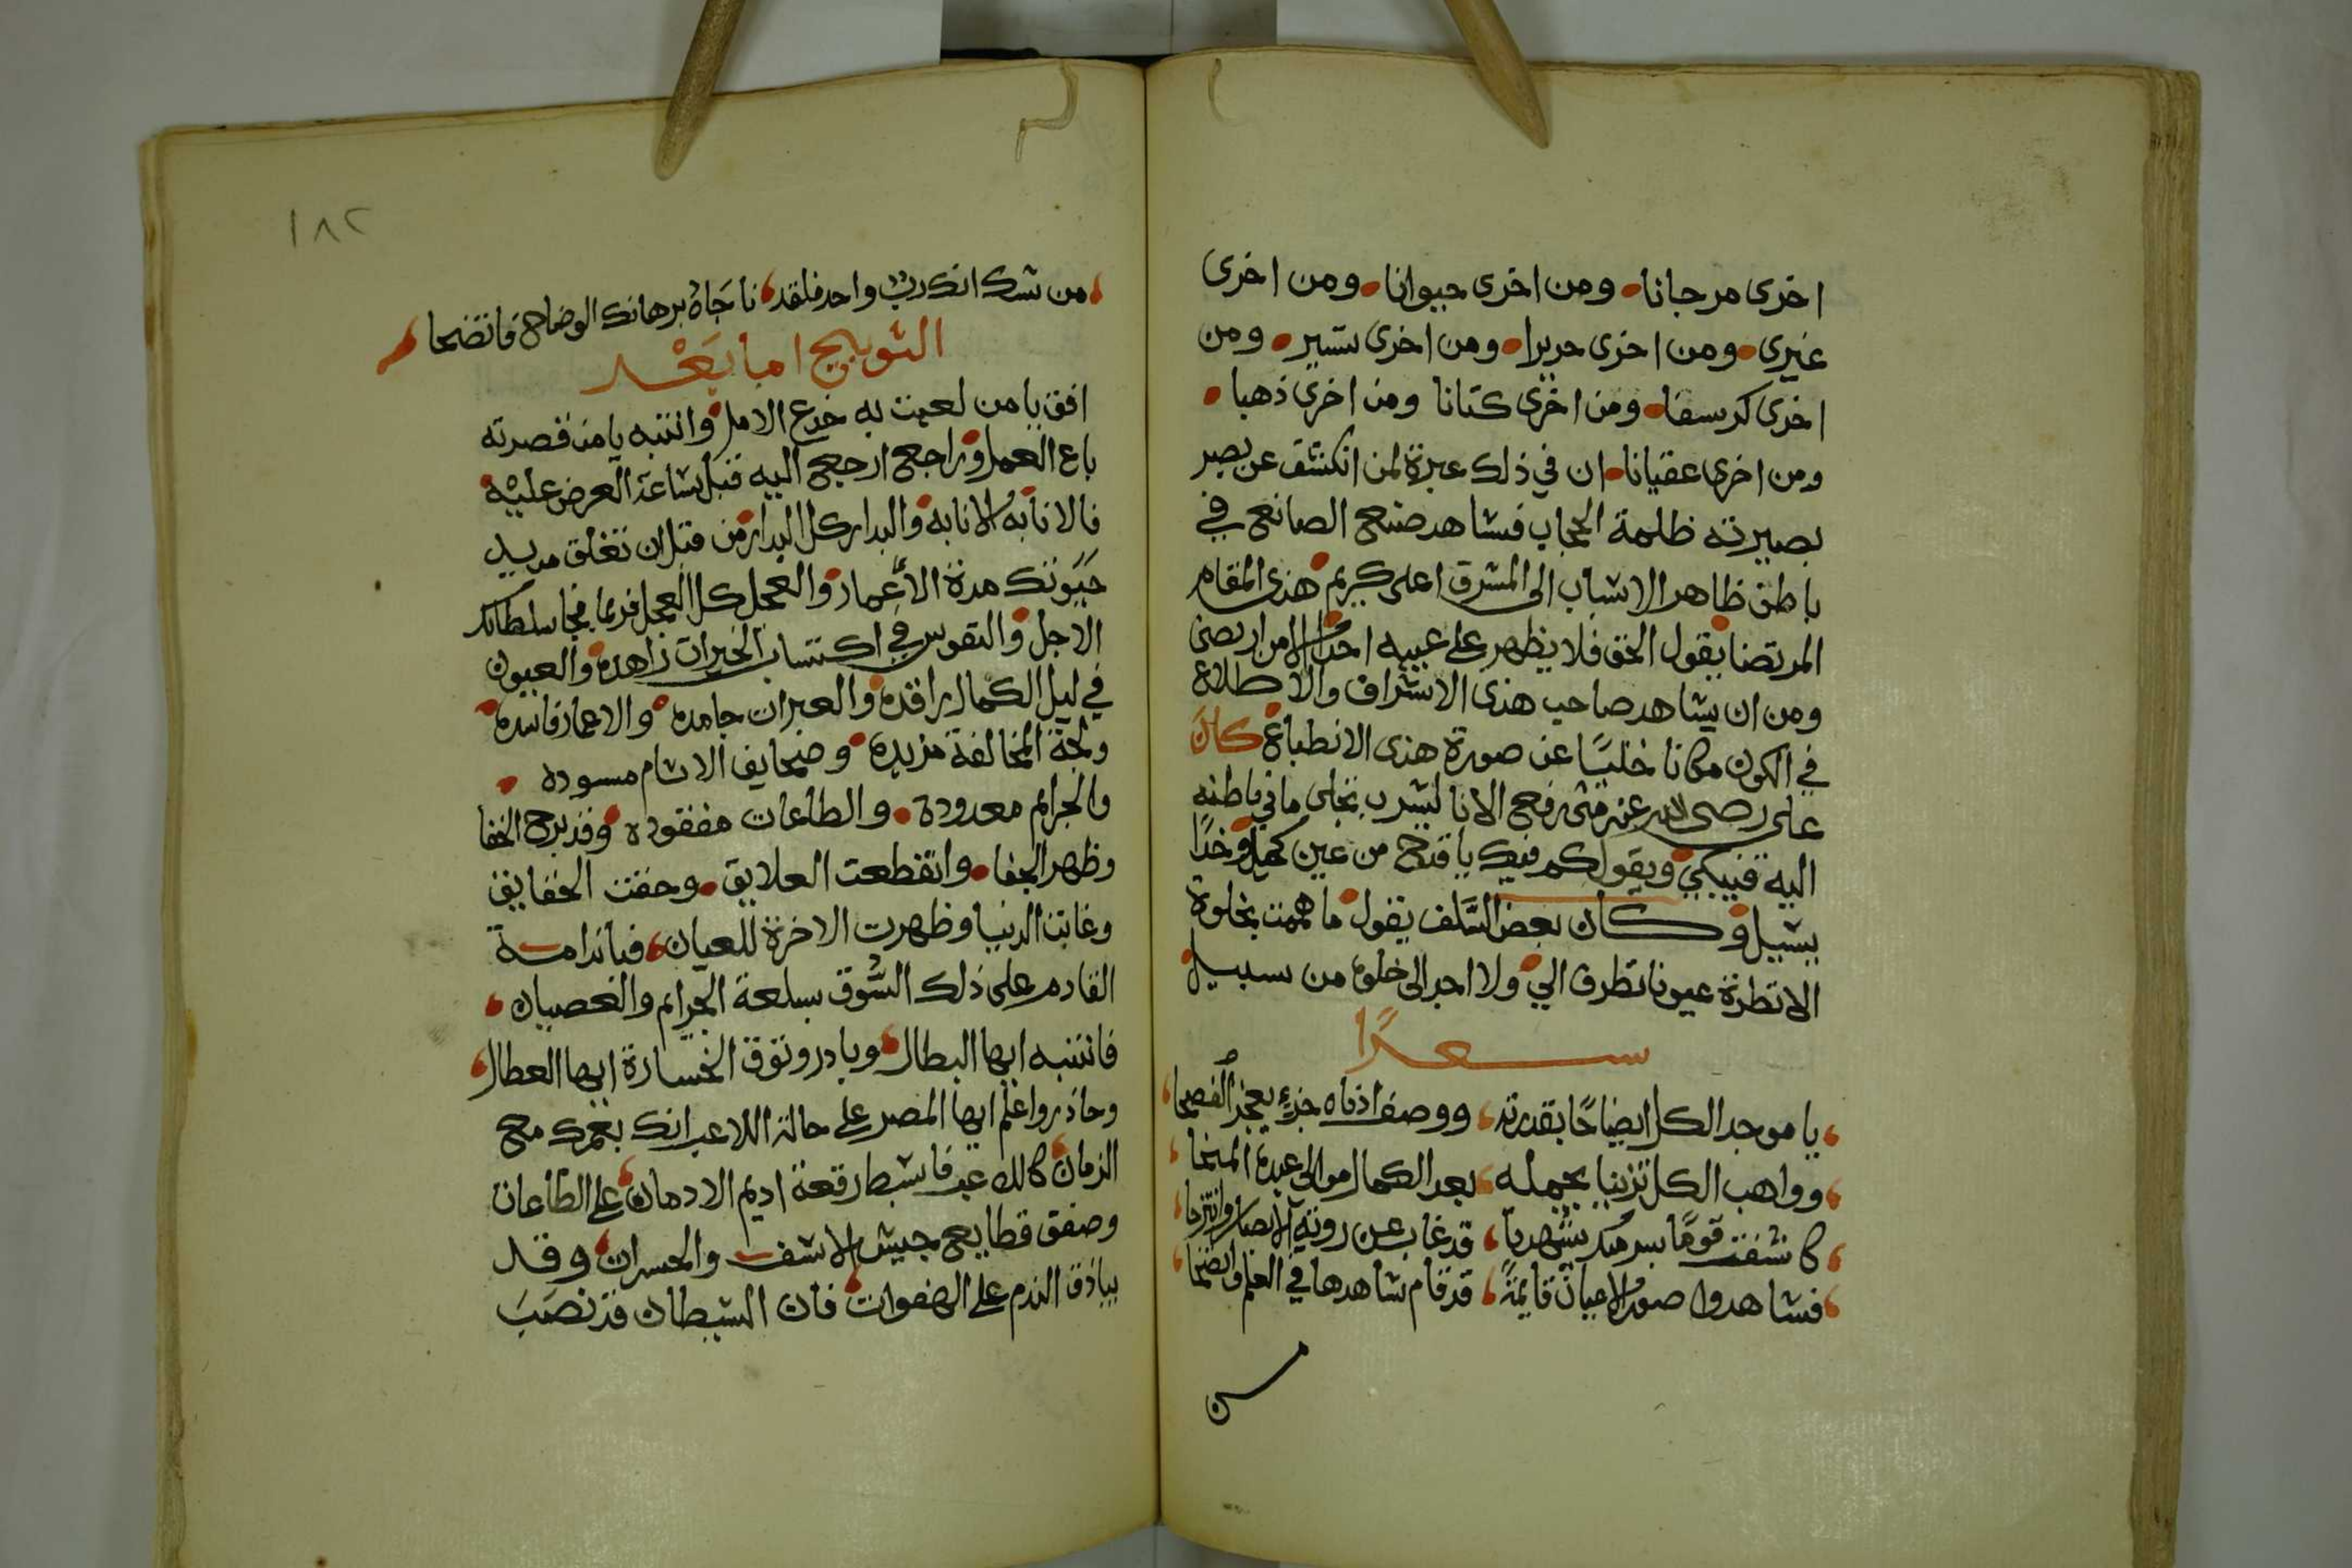 اخرى مرجانا ومن اخرى حيوانا ومن اخرى
عنبرى ومن اخرى حريرا ومن اخرى ومن
اخرى كرسفا ومن اخرى كتانا ومن اخرى ذهبا
ومن اخرى عقيانا ان في ذلك عبرة لمن انكشف عن بصر
بصيرته ظلمة الحجاب فشاهد صنع الصانع في
باطن ظاهر الاسباب الى المشرق اعلى كريم هذى المقام
المرتضا يقول الحق فلا يظهر على غيبه احدا الا من ارتضى
ومن ان يشاهد صاحب هذى الاشراف والاطلاع
في الكون مكانا خليًا عن صورة هذى الانطباع كان
على رضى الله عنه متى رفع الانا ليشرب تجلى ما في باطنه
اليه فيبكي ويقول كم فيك يا قدح من عين كحيل وخدًا
بسيل وكان بعض السَّلف يقول ما هممت بخلوة
الا نظرة عيونا تطرق الي ولا احد الى خلوة من سبيل
شعرًا
يا موجد الكل ايضاحًا بقدرته ووصف ادناه جزءٍ يعجز الفصحا
وواهب الكل تزيينا بجمله بعد الكمال موالى عبده المنحا
كاشفت قومًا بسر منك قد غاب عن روئية الابصار
فشاهدوا صور الاعيان قايمةً قد قام شاهدها في العلم واتضحا
من
١٨٢
من شك انك رب واحد فلقد ناجَاهُ برهانك الوضاح فاتضحا
التوبيخ اما بَعْد
افق يا من لعبت به خدع الامل وانتبه يا من قصرته
باع العمل وراجع ارجع اليه قبل ساعة العرض عليه
فالانابه الانابه والبدار كل البدار من قبل ان تغلق مد يد
حَيَوتك مدة الأعمار والعجل كل العجل فربما فجا سلطانك
الاجل والنفوس في اكتساب الخيرات زاهده والعيون
في ليل الكمال راقده والعبرات جامده والاعمار فاسده
ولجة المخالفة مزبده وصحايف الاثام مسوده
والجرايم معدودة والطاعات مفقوده وقد برح الخفا
وظهر الجفا وانقطعت العلايق وحقت الحقايق
وغابت الدنيا وظهرت الاخرة للعيان فيا ندامة
القادم على ذلك السُّوق بسلعة الجرايم والعصيان
فانتبه ايها البطال وبادر وتوق الخسارة ايها العطال
وحاذر واعلم ايها المصر على حالة اللاعب انك بعمرك مع
الزمان كالك عبد فابسط رقعة اديم الادمان على الطاعات
وصفق قطايع جيش الاسف والحسران وقد
بياذق الندم على الهفوات فان الشيطان قد نصَبَ